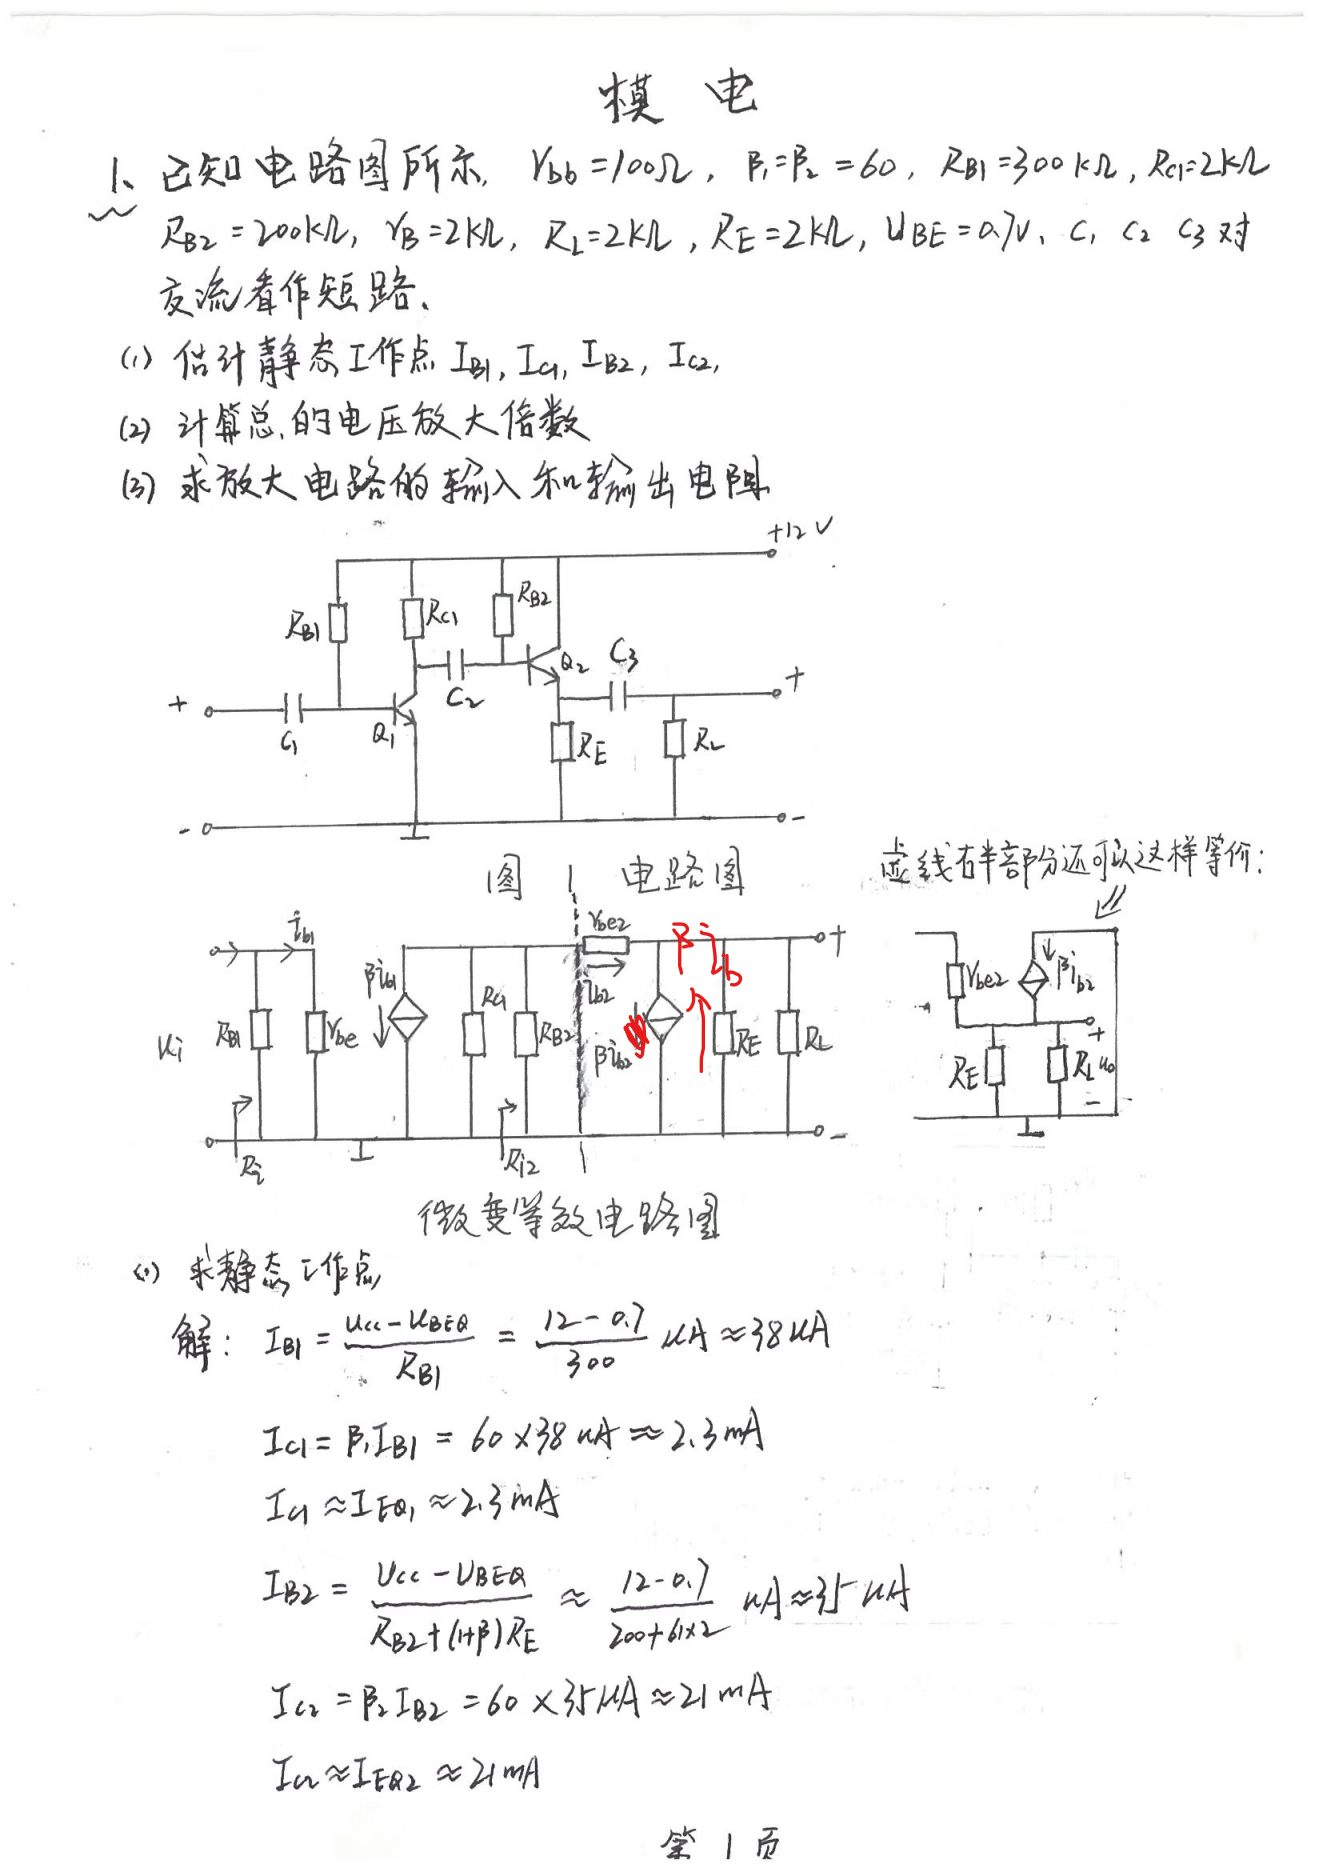 模 电
1、已知电路图所示, rbb=100Ω, β₁=β₂=60, RB1=300KΩ, RC1=2KΩ
RB2=200KΩ, rB=2KΩ, RL=2KΩ, RE=2KΩ, UBE=0.7V、C₁ C₂ C₃对
交流看作短路、
(1) 估计静态工作点 IB1, IC1, IB2, IC2,
(2) 计算总的电压放大倍数
(3) 求放大电路的输入和输出电阻
+12V
RB1
RC1
RB2
Q2
C3
+
+
C1
Q1
C2
RE
RL
-
-
图1 电路图
虚线右半部分还可以这样等价:
ib1
rbe2
βib
+
Ui
RB1
rbe
βib1
RC1
RB2
ib2
βib2
RE
RL
-
Ri
Ri2
rbe2
βib2
RE
RL
+
uo
-
微变等效电路图
(1) 求静态工作点
解: IB1 = (Ucc-UBEQ)/RB1 = (12-0.7)/300 uA ≈38uA
IC1 = β₁IB1 = 60×38uA≈2.3mA
IC1≈IEQ1≈2.3mA
IB2 = (Ucc-UBEQ)/(RB2+(1+β)RE) ≈ (12-0.7)/(200+61×2) uA≈35uA
IC2 = β₂IB2 = 60×35uA≈21mA
IC2≈IEQ2≈21mA
第 1 页